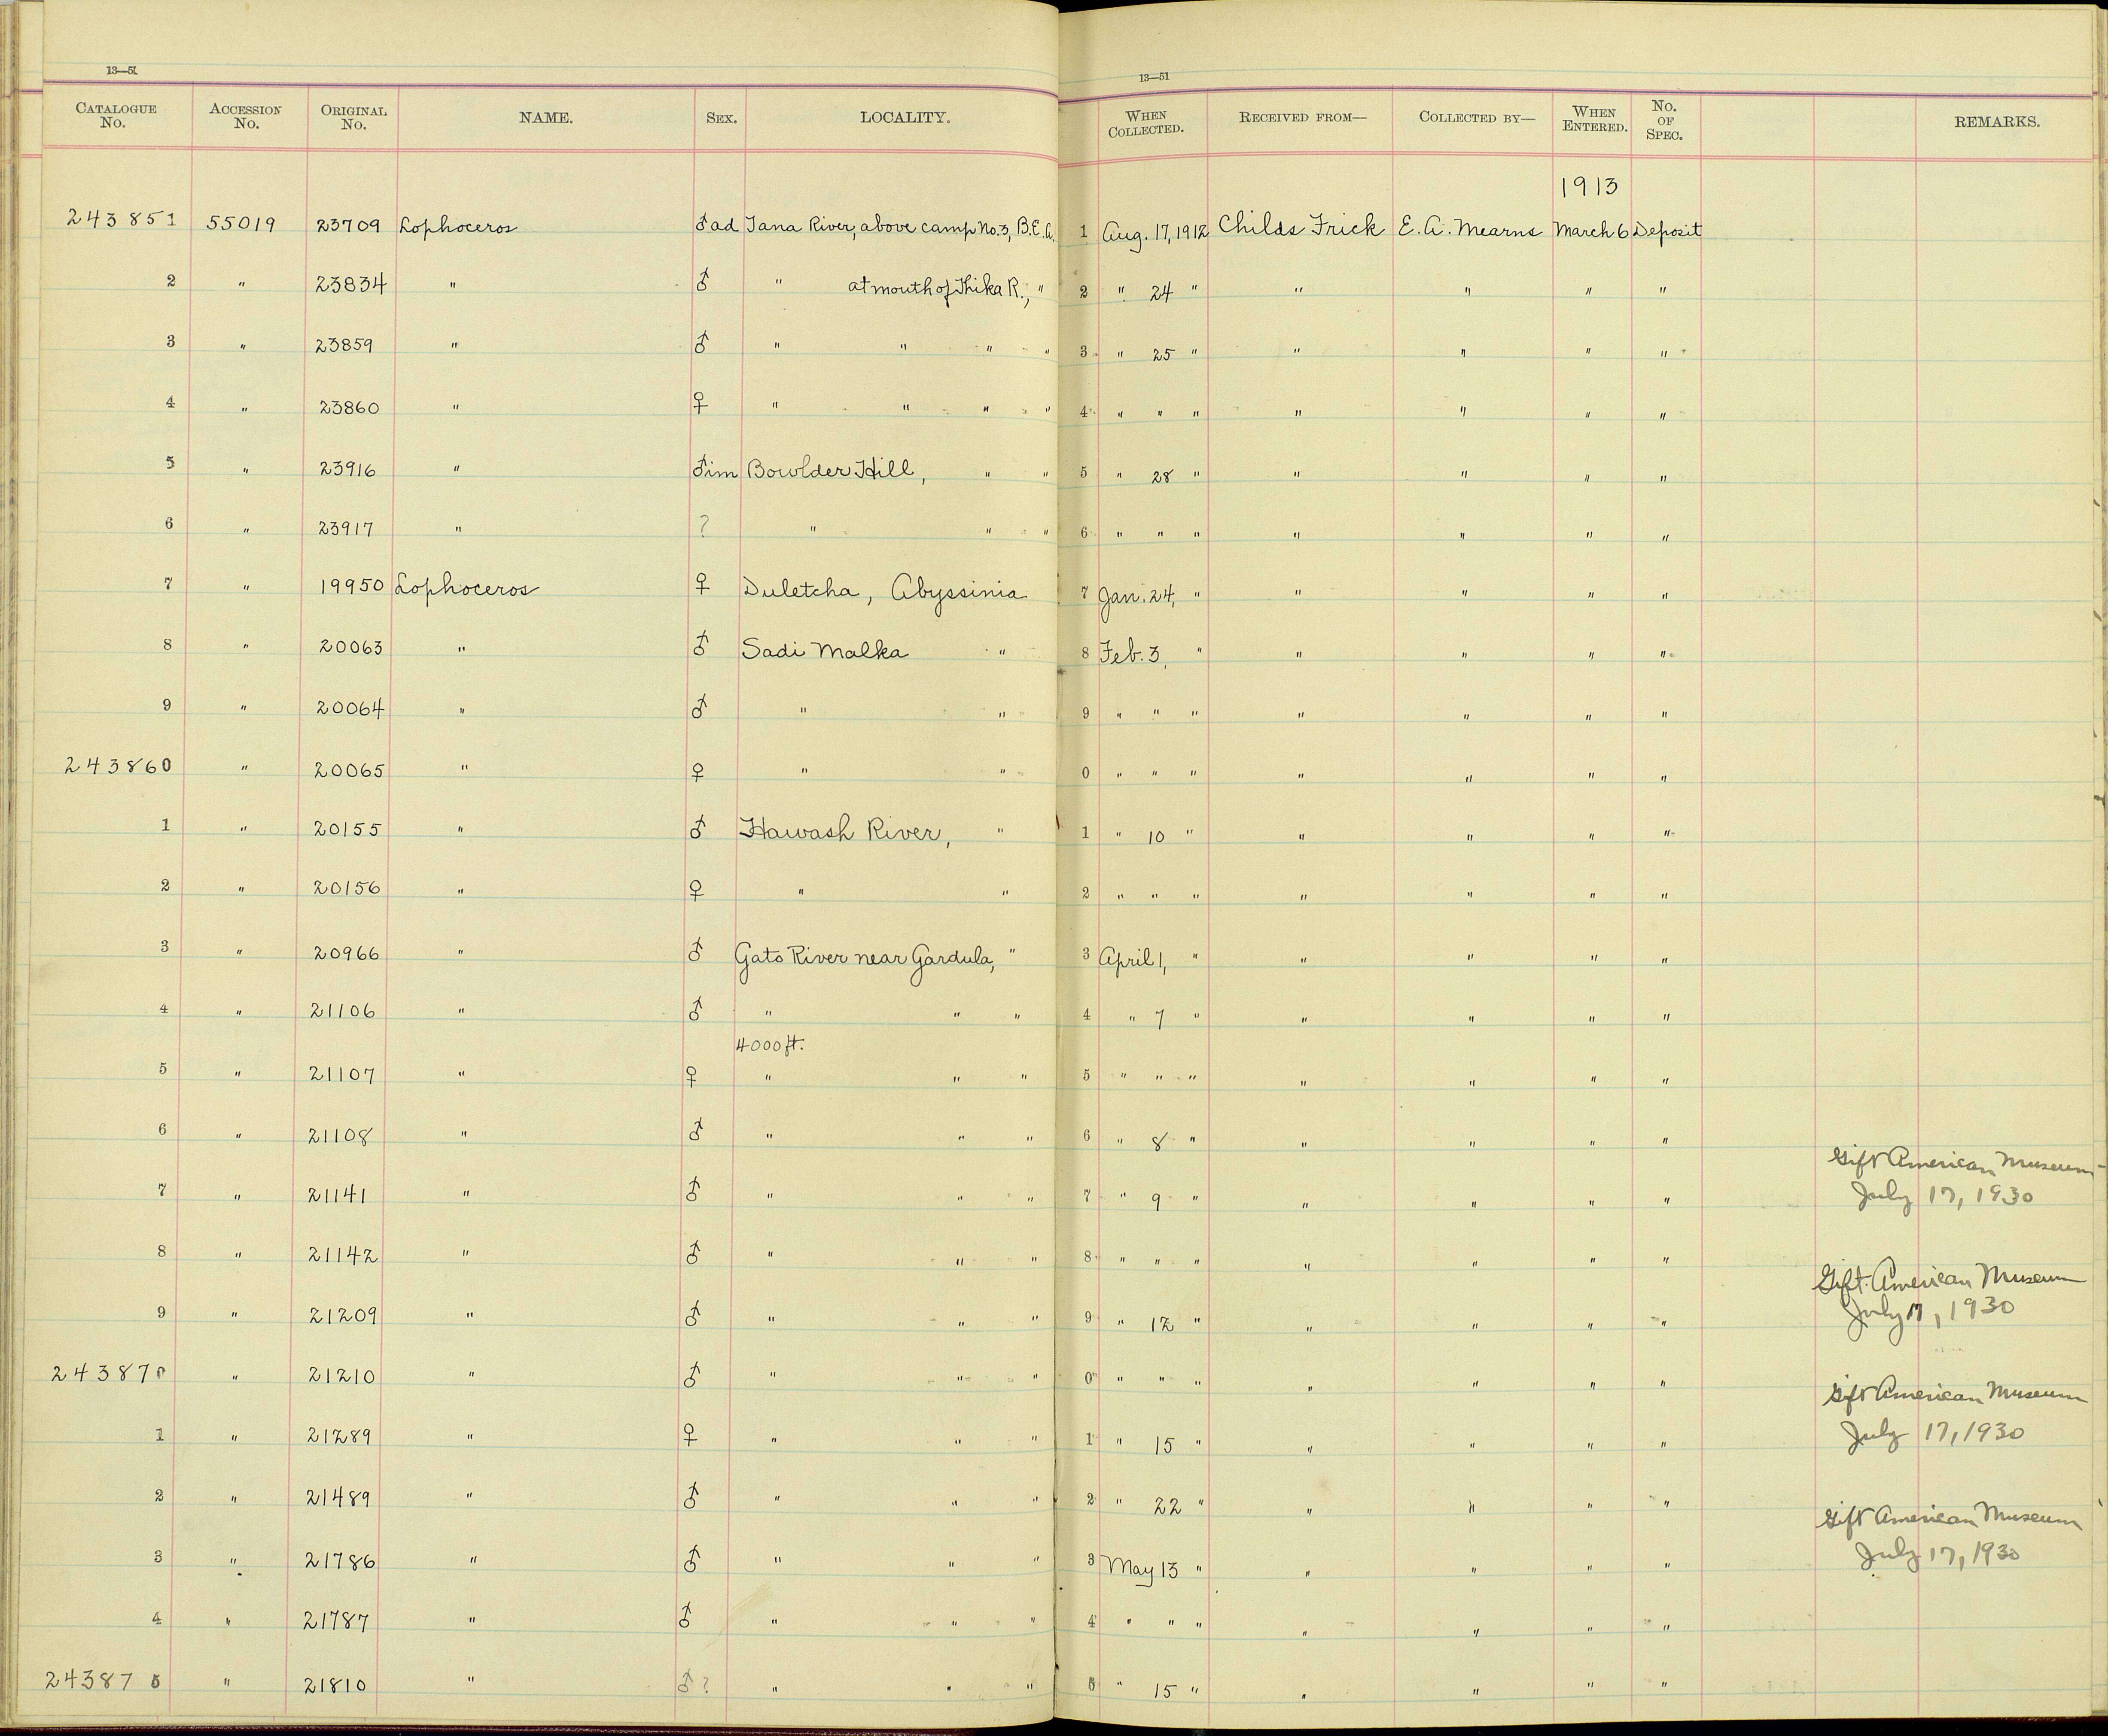 13—51
13—51
CATALOGUE No. ACCESSION No. ORIGINAL No. NAME. SEX. LOCALITY. WHEN COLLECTED. RECEIVED FROM— COLLECTED BY— WHEN ENTERED. No. OF SPEC. REMARKS.
1913
243851 55019 23709 Lophoceros ♂ad Tana River, above camp No. 3, B.E.A. 1 Aug. 17, 1912 Childs Frick E. A. Mearns March 6 Deposit
2 " 23834 " ♂ " at mouth of Thika R., " 2 " 24 " " " " "
3 " 23859 " ♂ " " " " 3 " 25 " " " " "
4 " 23860 " ♀ " " " " 4 " " " " " " "
5 " 23916 " ♂im Bowlder Hill, " " 5 " 28 " " " " "
6 " 23917 " ? " " " 6 " " " " " " "
7 " 19950 Lophoceros ♀ Duletcha, Abyssinia 7 Jan. 24, " " " " "
8 " 20063 " ♂ Sadi Malka " 8 Feb. 3, " " " " "
9 " 20064 " ♂ " " 9 " " " " " " "
243860 " 20065 " ♀ " " 0 " " " " " " "
1 " 20155 " ♂ Hawash River, " 1 " 10 " " " " "
2 " 20156 " ♀ " " 2 " " " " " " "
3 " 20966 " ♂ Gato River near Gardula, " 3 April 1, " " " " "
4 " 21106 " ♂ " " " 4 " 7 " " " " "
4000 ft.
5 " 21107 " ♀ " " " 5 " " " " " " "
6 " 21108 " ♂ " " " 6 " 8 " " " " "
Gift American Museum
7 " 21141 " ♂ " " " 7 " 9 " " " " " July 17, 1930
8 " 21142 " ♂ " " " 8 " " " " " " "
Gift American Museum
9 " 21209 " ♂ " " " 9 " 12 " " " " " July 17, 1930
243870 " 21210 " ♂ " " " 0 " " " " " " "
Gift American Museum
1 " 21289 " ♀ " " " 1 " 15 " " " " " July 17, 1930
2 " 21489 " ♂ " " " 2 " 22 " " " " "
Gift American Museum
3 " 21786 " ♂ " " " 3 May 13 " " " " " July 17, 1930
4 " 21787 " ♂ " " " 4 " " " " " " "
243875 " 21810 " ♂? " " " 5 " 15 " " " " "